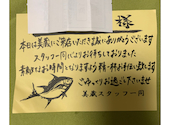 様
本日は美蔵にご来店いただき誠にありがとうございます
スタッフ一同心よりお待ちしておりました
素敵なお時間となりますよう精一杯お手伝い致します
ごゆっくりお過ごし下さいませ
美蔵スタッフ一同